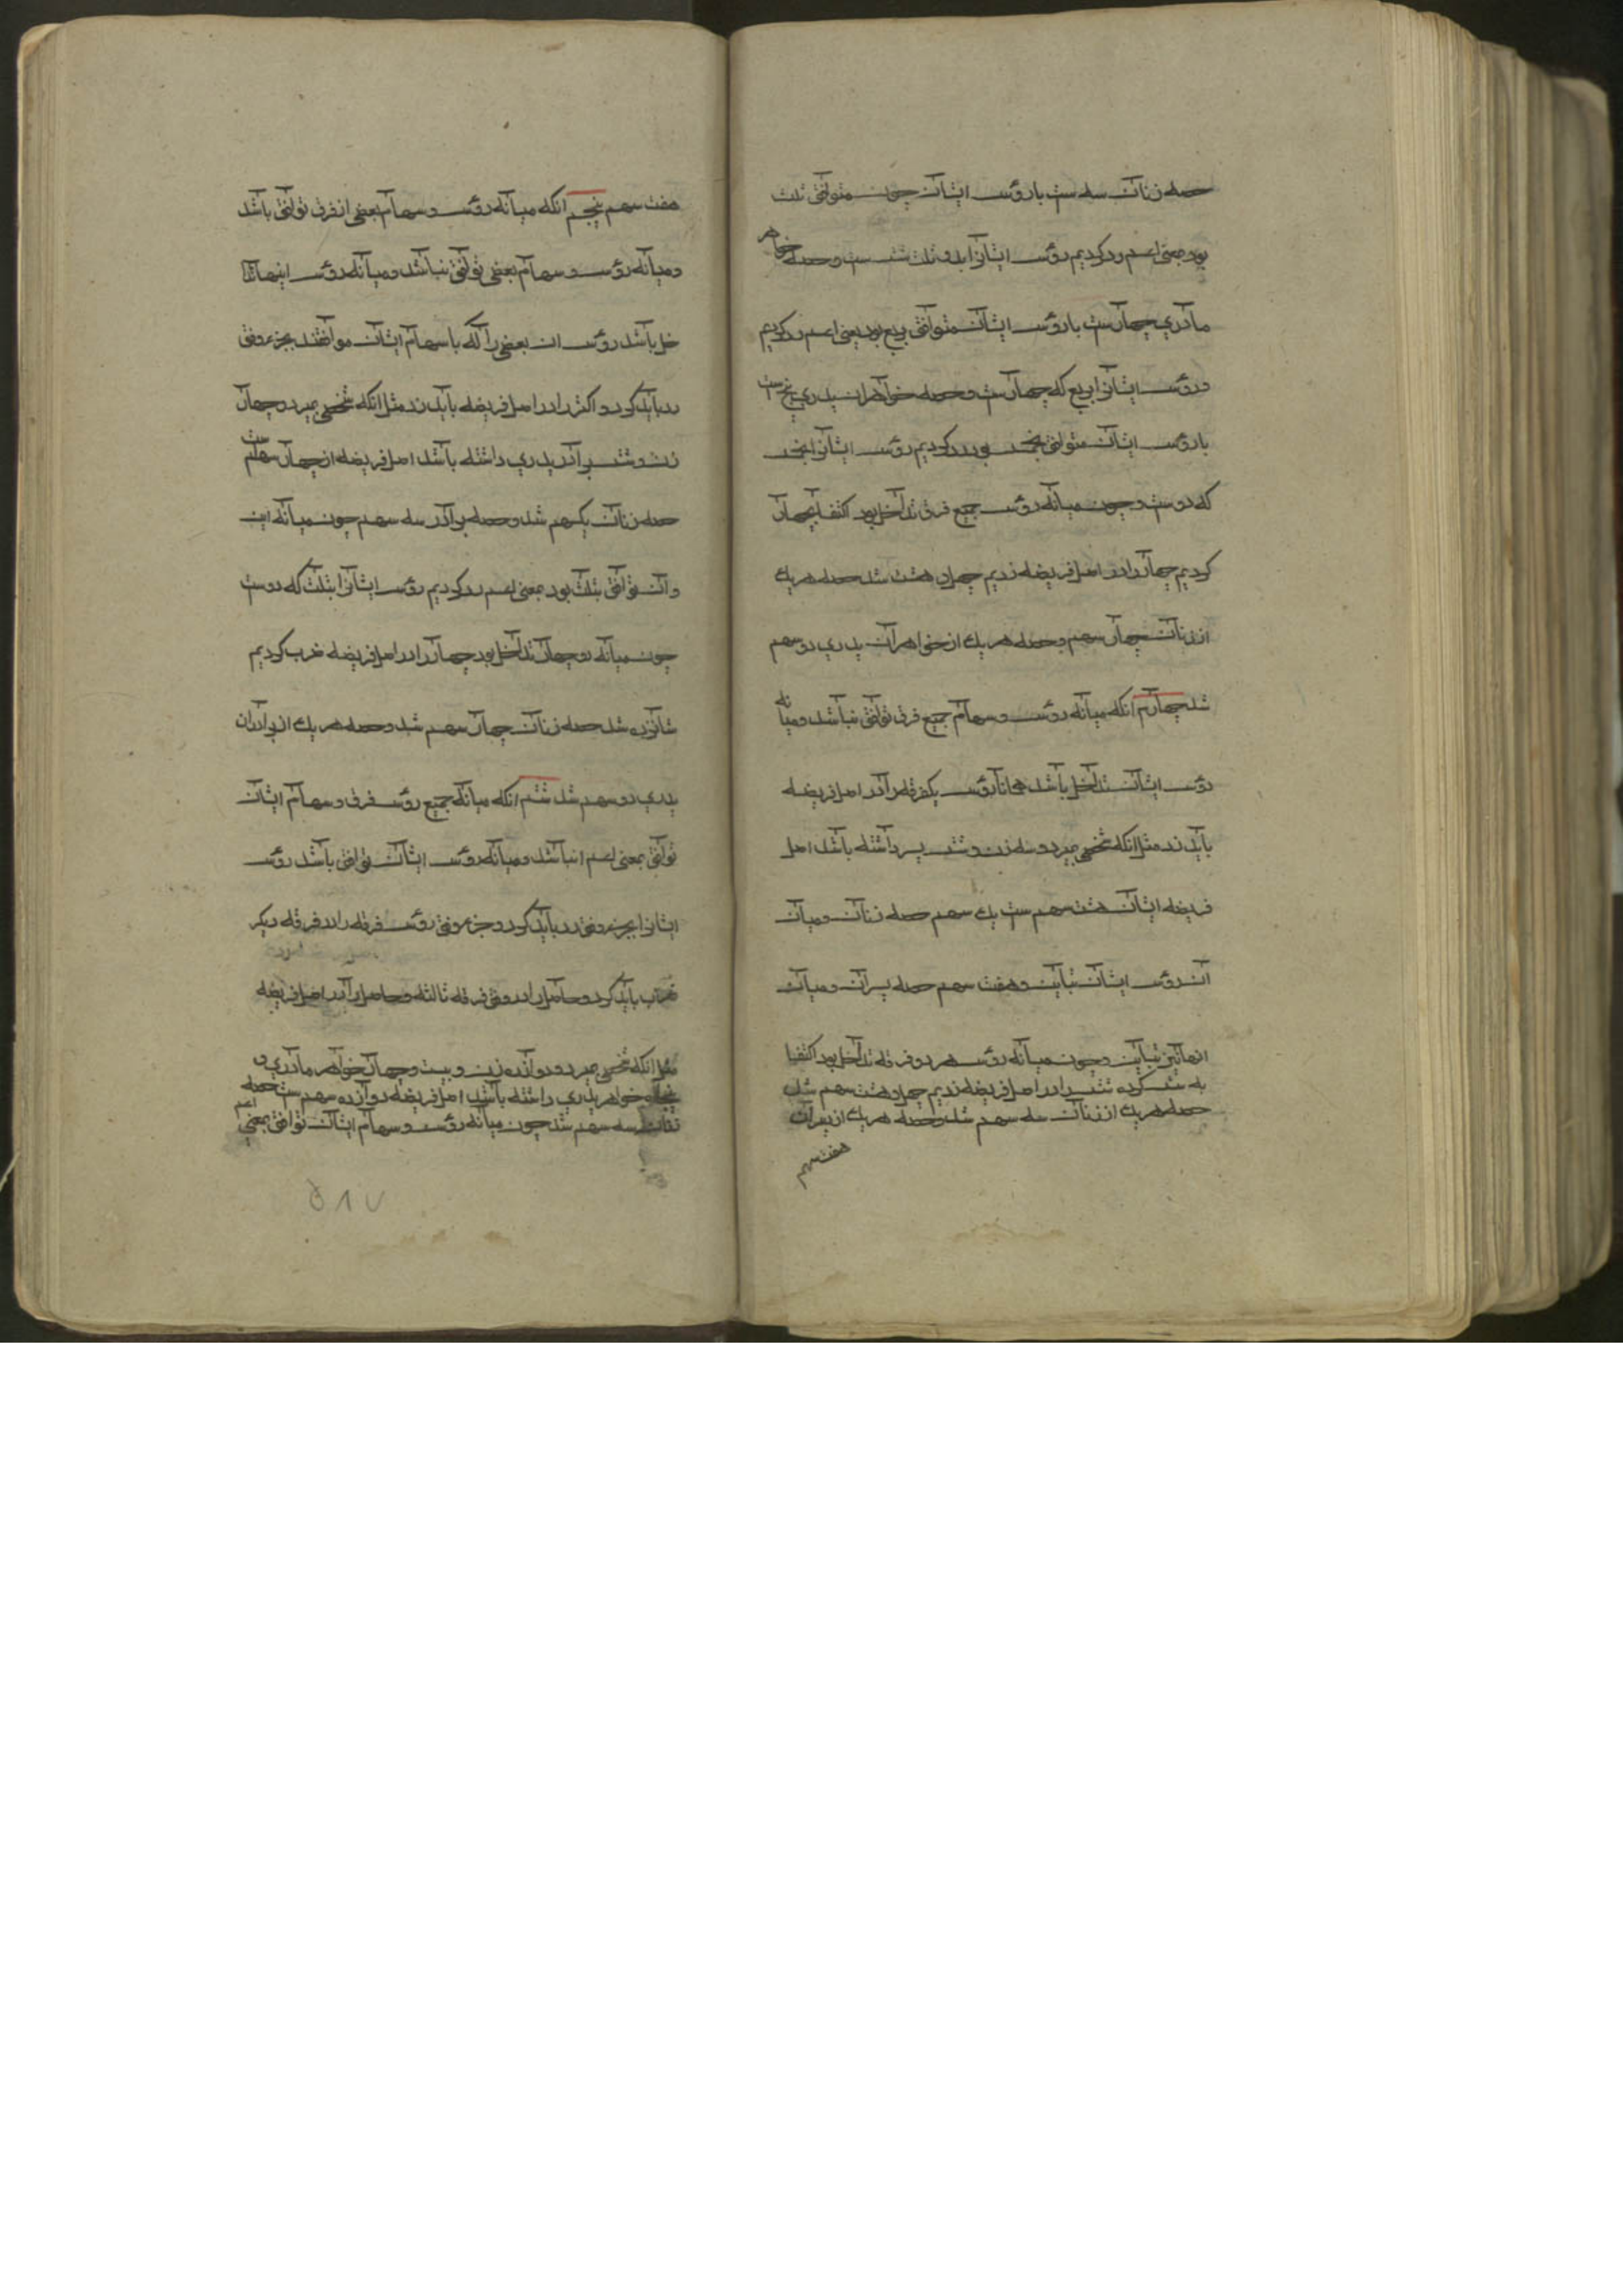 حصه زنان سه ست با رؤس ایشان چون متوافق ثلث
بود بمعنی اعم رد کردیم رؤس ایشانرا بدو ثلث شش ست و حصه خواهر
مادری چهارست با رؤس ایشان متوافق بربع بود بمعنی اعم رد کردیم
رؤس ایشانرا بربع که چهارست و حصه خواهران پدری پنج ست
با رؤس ایشان متوافق بخمس پس رد کردیم رؤس ایشانرا بخمس
که دوست و چون میانه رؤس جمیع فرق تداخل بود اکتفا بچهار
کردیم چهار را در اصل فریضه زدیم چهل و هشت شد حصه هر یک
از زنان چهار سهم و حصه هر یک از خواهران پدری دو سهم
شد چهارم انکه میانه رؤس و سهام جمیع فرق توافق نباشد و میانه
رؤس ایشان تداخل باشد همانا رؤس یکفرقه را در اصل فریضه
باید زد مثل انکه شخصی میرد و سه زن و شش پسر داشته باشد اصل
فریضه ایشان هشت سهم ست یک سهم حصه زنان و میان
ان رؤس ایشان تباین و هفت سهم حصه پسران و میان
انها نیز تباین و چون میانه رؤس هر دو فرقه تداخل بود اکتفا
به شش کرده شش را در اصل فریضه زدیم چهل و هشت سهم شد
حصه هر یک از زنان سه سهم شد و حصه هر یک از پسران
هفت سهم
هفت سهم پنجم انکه میانه رؤس و سهام بعضی از فرق توافق باشد
و میانه رؤس و سهام بعضی توافق نباشد و میانه رؤس اینها تدا
خل باشد رؤس ان بعضی را که با سهام ایشان موافقند بجزء وفق
رد باید کرد و اکثر را در اصل فریضه باید زد مثل انکه شخصی میرد و چهار
زن و شش برادر پدری داشته باشد اصل فریضه از چهار سهام ست
حصه زنان یکسهم شد و حصه برادر سه سهم چون میانه این
و ان توافق بثلث بود بمعنی اعم رد کردیم رؤس ایشانرا بثلث که دوست
چون میانه دو چهار تداخل بود چهار را در اصل فریضه ضرب کردیم
شانزده شد حصه زنان چهار سهم شد و حصه هر یک از برادران
پدری دو سهم شد ششم انکه میانه جمیع رؤس فرق و سهام ایشان
توافق بمعنی اعم نباشد و میانه رؤس ایشان توافق باشد رؤس
ایشانرا بجزء وفق رد باید کرد و جزء وفق رؤس فرقه را در فرقه دیگر
ضرب باید کرد و حاصل را در وفق فرقه ثالثه و حاصل را در اصل فریضه
مثل انکه شخصی میرد و دوازده زن و بیست و چهار خواهر مادری و
پنجاه خواهر پدری داشته باشد اصل فریضه دوازده سهم ست حصه
زنان سه سهم شد چون میانه رؤس و سهام ایشان توافق بمعنی اعم
۵۱۷